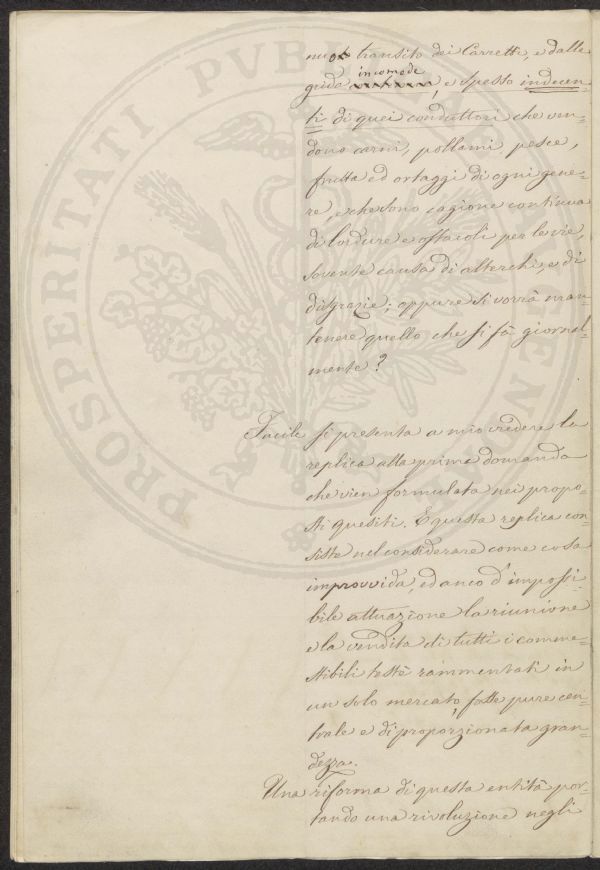 nuo transito dei Carretti, e dalle
incomode
grida, e spesso indecen=
ti di quei conduttori che ven=
dono carni, pollami, pesce,
frutta ed ortaggi di ogni gene=
re, e che sono cagione continua
di lordure e ostacoli per le vie,
sovente causa di alterchi, e di
disgrazie; oppure si vorrà man=
tenere quello che si fà giornal=
mente?
Facile si presenta a mio credere la
replica alla prima domanda
che vien formulata nei propo=
sti quesiti. E questa replica con=
siste nel considerare come cosa
improvvida, ed anco d'impossi=
bile attuazione la riunione
e la vendita di tutti i comme=
stibili testè rammentati in
un solo mercato, fosse pure cen=
trale e di proporzionata gran=
dezza.
Una riforma di questa entità por=
tando una rivoluzione negli
PROSPERITATI PVBLI